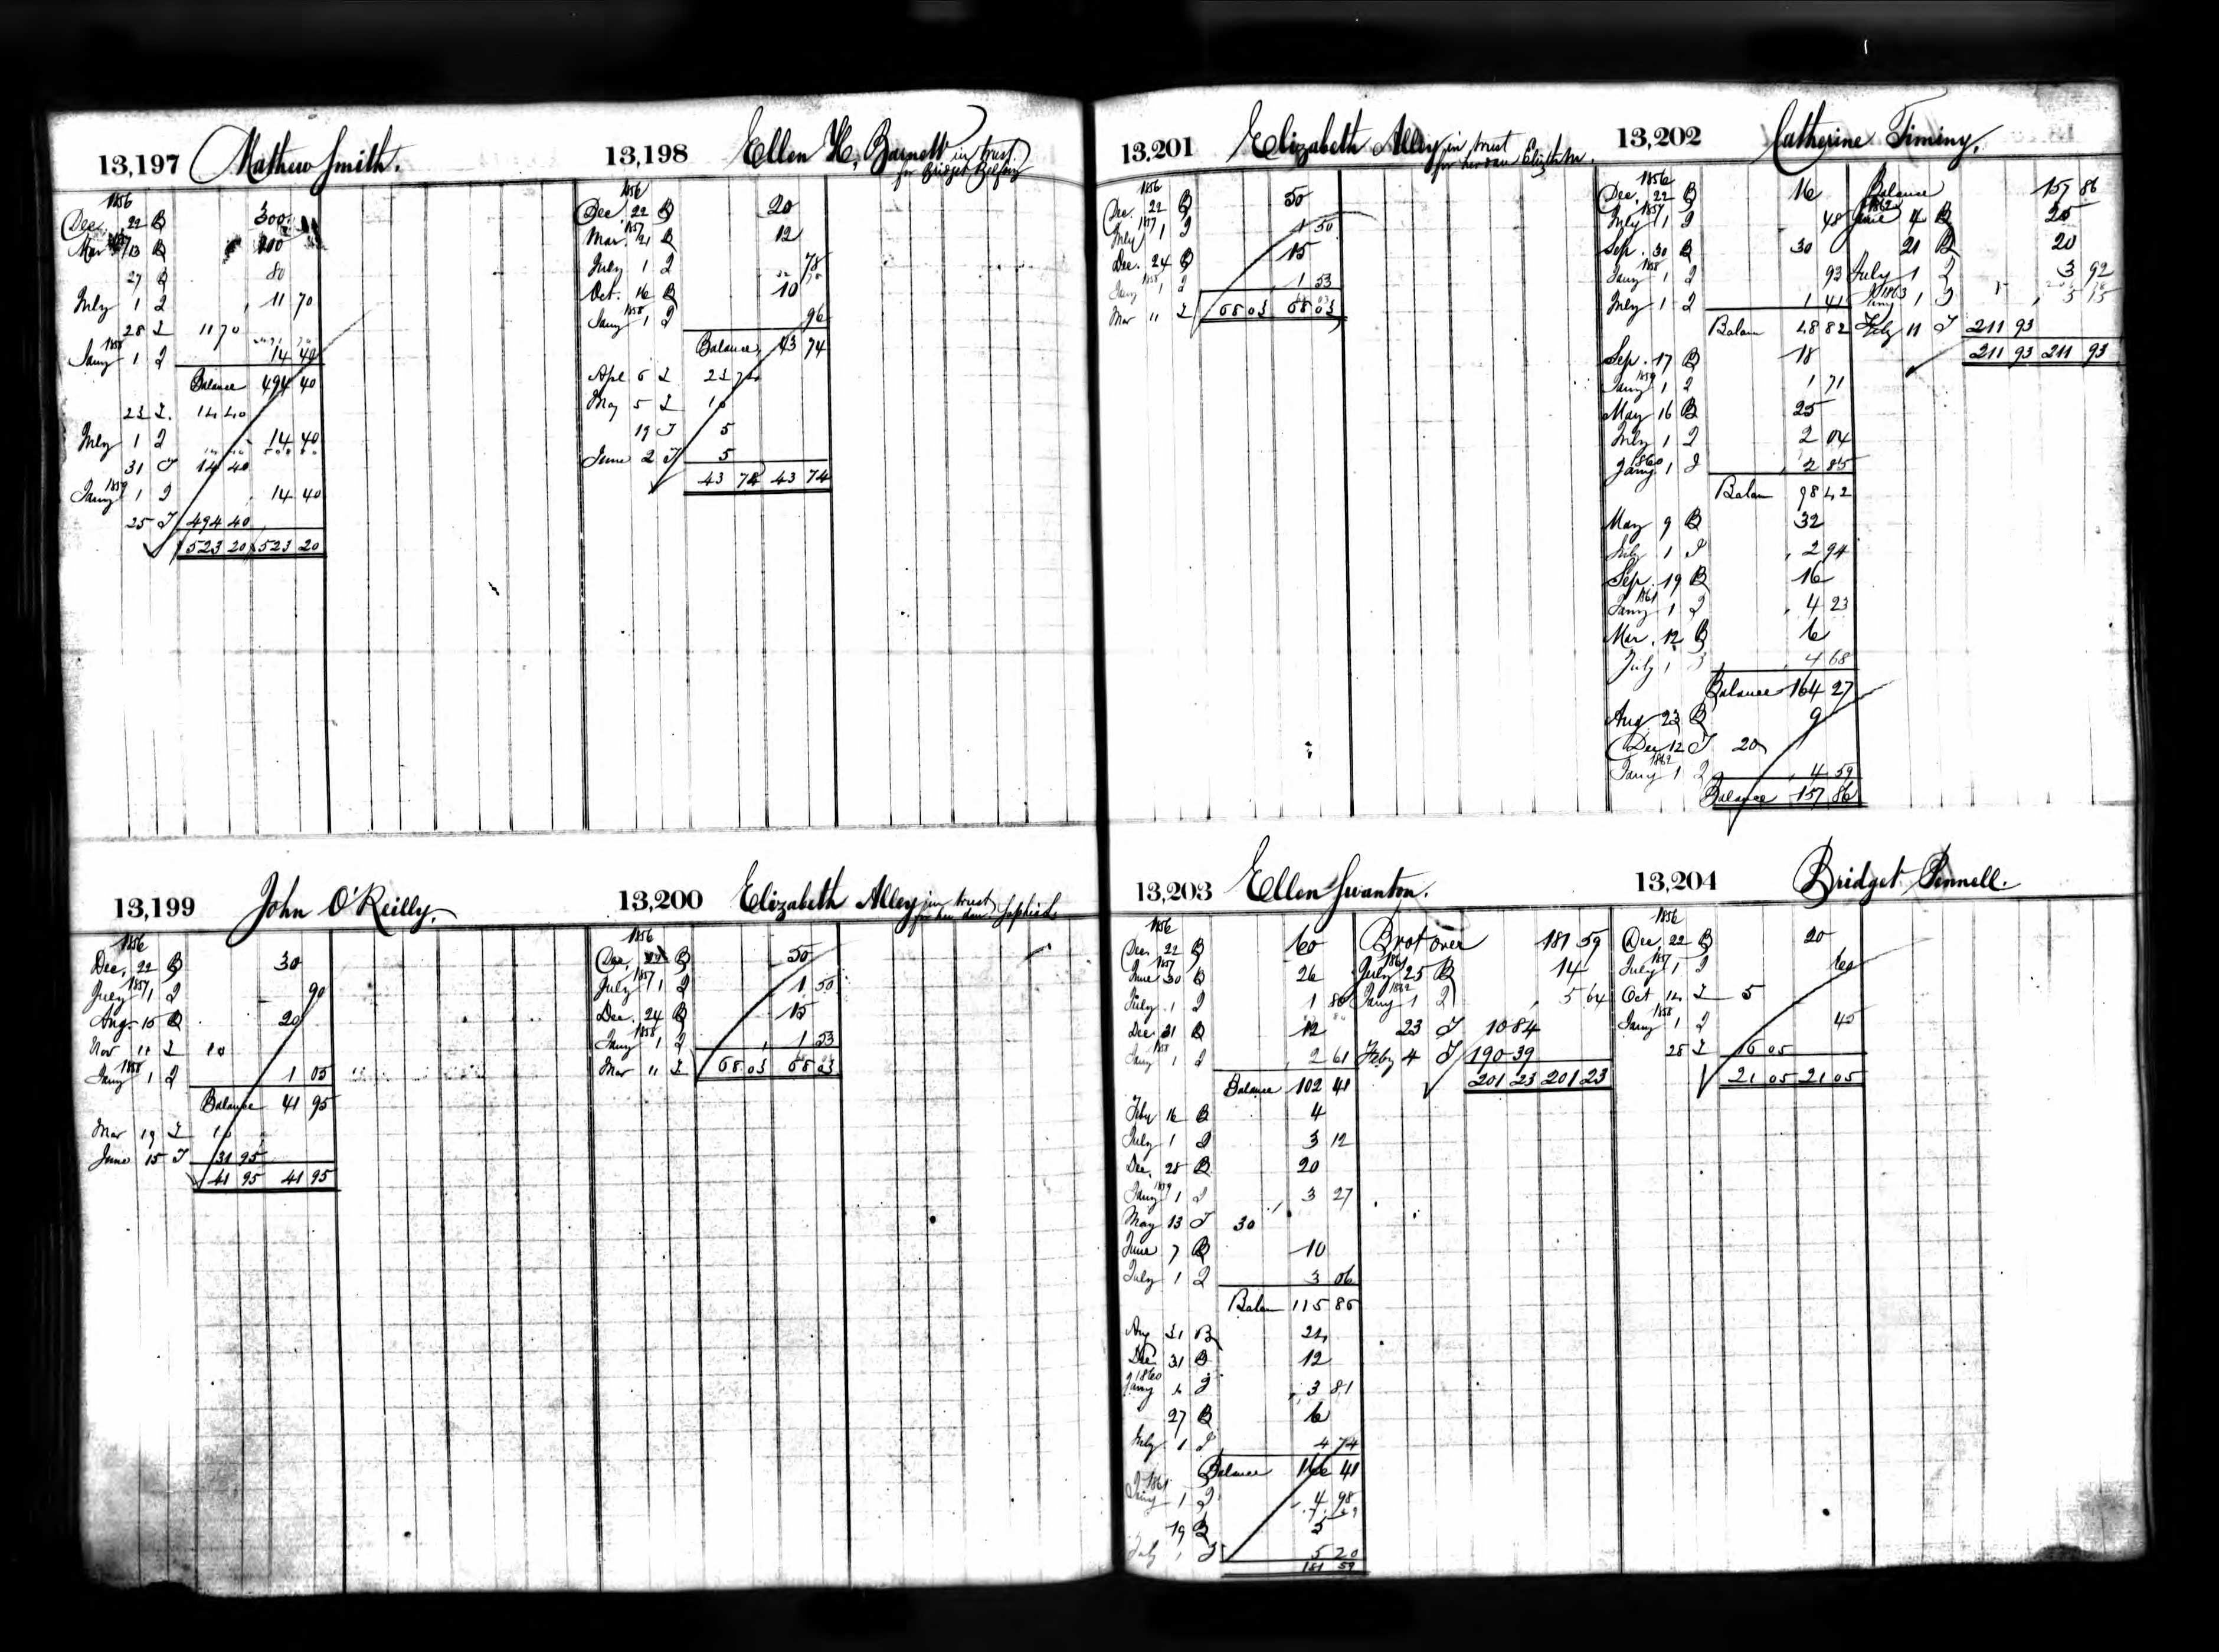 13,197 Mathew Smith.
1856
Dec. 22 B 300
1857
Mar 13 B 200
27 B 80
July 1 I 11 70
28 I 11 70
1858
Jany 1 I 14 40
Balance 494 40
23 I. 14 40
July 1 I 14 40
31 I 14 40
1859
Jany 1 I 14 40
25 I 494 40
523 20 523 20
13,198 Ellen H. Barnett in trust
for Bridget
1856
Dec. 22 B 20
1857
Mar. 21 B 12
July 1 I 78
Oct. 16 B 10
1858
Jany 1 I 96
Balance 43 74
Apl 6 I 23 74
May 5 I 10
19 I 5
June 2 I 5
43 74 43 74
13,199 John O'Reilly.
1856
Dec. 22 B 30
1857
July 1 I 90
Aug. 15 B 20
Nov 11 I 10
1858
Jany 1 I 1 05
Balance 41 95
Mar 19 I 10
June 15 I 31 95
41 95 41 95
13,200 Elizabeth Alley in trust
for her dau Sophia
1856
Dec. 22 B 50
1857
July 1 I 1 50
Dec. 24 B 15
1858
Jany 1 I 1 53
Mar 11 I 68 03 68 03
13,201 Elizabeth Alley in trust
for her dau Elizth M.
1856
Dec. 22 B 50
1857
July 1 I 1 50
Dec. 24 B 15
1858
Jany 1 I 1 53
Mar 11 I 68 03 68 03
13,202 Catherine Timiny.
1856
Dec. 22 B 16
1857
July 1 I 48
Sep. 30 B 30
1858
Jany 1 I 93
July 1 I 1 41
Balan 48 82
Sep. 17 B 18
1859
Jany 1 I 1 71
May 16 B 25
July 1 I 2 04
1860
Jany 1 I 2 85
Balan 98 42
May 9 B 32
July 1 I 2 94
Sep. 19 B 16
1861
Jany 1 I 4 23
Mar. 12 B 6
July 1 I 4 68
Balance 164 27
Aug 23 B 9
Dec 12 I 20
1862
Jany 1 I 4 59
Balance 157 86
Balance 157 86
1862
June 4 B 25
21 B 20
July 1 I 3 92
1863
Jany 1 I 5 15
Feby 11 I 211 93
211 93 211 93
13,203 Ellen Swanton.
1856
Dec. 22 B 60
1857
June 30 B 26
July 1 I 1 80
Dec 31 B 12
1858
Jany 1 I 2 61
Balance 102 41
Feby 16 B 4
July 1 I 3 12
Dec. 28 B 20
1859
Jany 1 I 3 27
May 13 I 30
June 7 B 10
July 1 I 3 06
Balan 115 86
Aug 31 B 24
Dec 31 B 12
1860
Jany 1 I 3 81
27 B 6
July 1 I 4 74
Balance 166 41
1861
Jany 1 I 4 98
19 B 5
July 1 I 5 20
181 59
Brot over 181 59
1861
July 25 B 14
1862
Jany 1 I 5 64
23 I 10 84
Feby 4 I 190 39
201 23 201 23
13,204 Bridget Pennell.
1856
Dec. 22 B 20
1857
July 1 I 60
Oct 14 I 5
1858
Jany 1 I 45
28 I 16 05
21 05 21 05